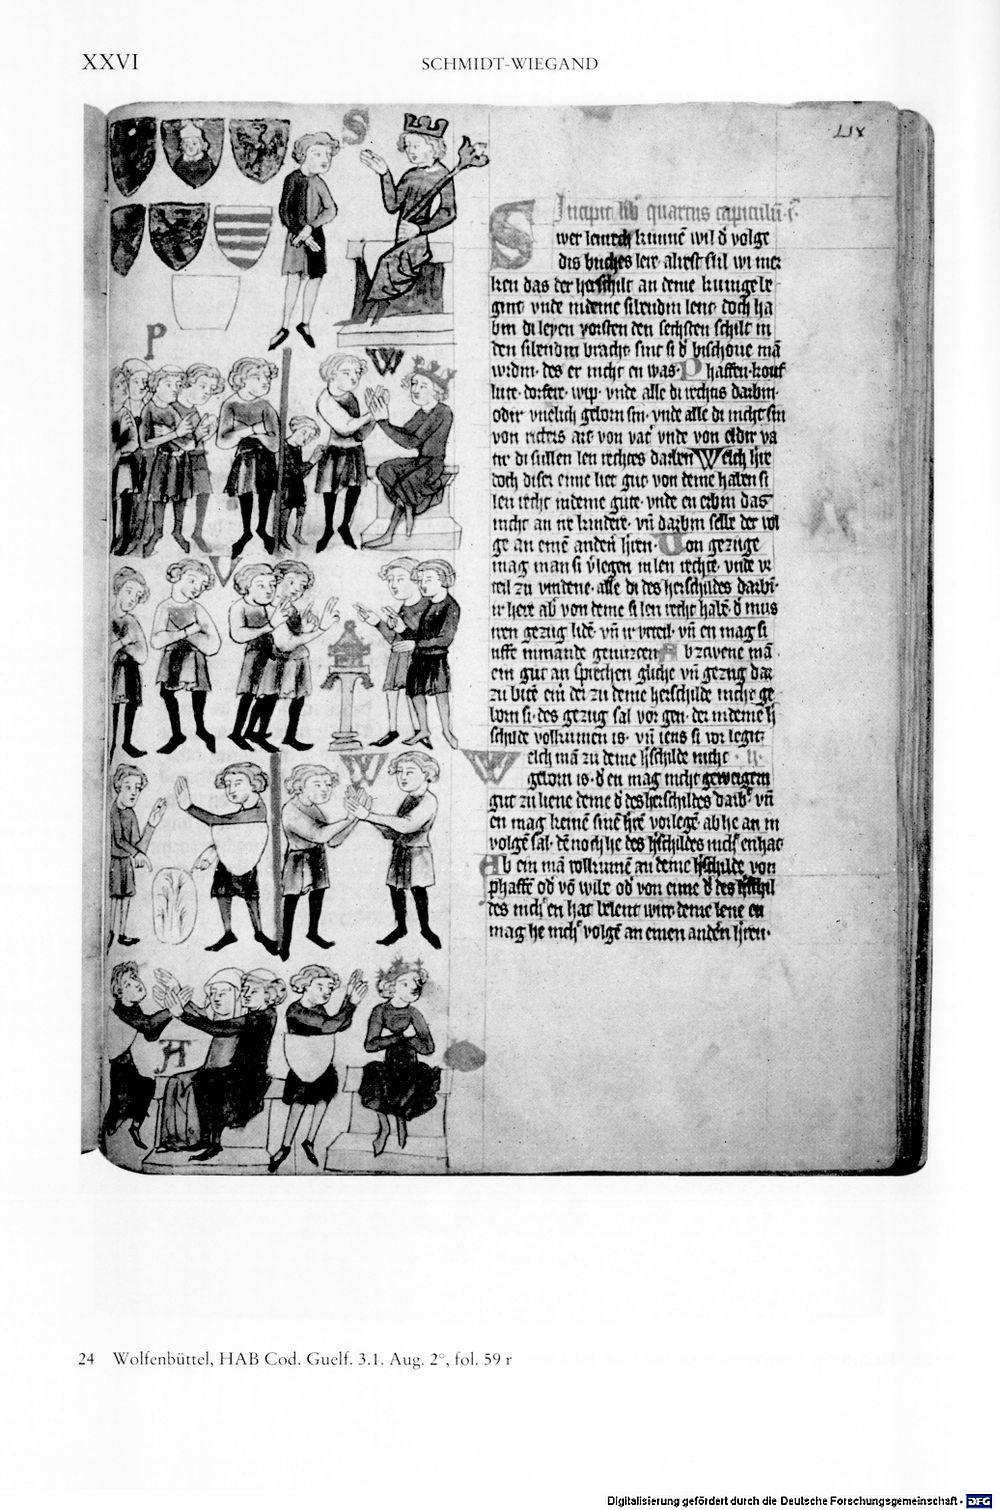 XXVI
SCHMIDT-WIEGAND
LIX
S
P
W
V
W
A
Incipit lib' quartus capitulū
Swer lenrech kunnē wil d volge
dis buches lere alrest sul wi mer
ken das der herschilt an deme kunige be
gint vnde in deme sibendin lent doch ha
bin di leyen vorsten den sechsten schilt in
den sibendin bracht sint si d bischoue mā
wrdin des er nicht en was Phaffen kouf
lute dorfere wip vnde alle di rechtis darbin
odir vnelich geborn sin vnde alle di nicht sin
von ritters art von vat' vnde von eldir va
tir di sullen len rechtes darben Welch h're
doch diser eime liet gut von deme haben si
len recht in deme gute vnde en erbin das
nicht an ire kindere vn darbin selbe der vol
ge an einē andern h'ren Von gezuge
mag man si v'legen in len rechte vnde vr
teil zu vindene alle di des herschildes darbī
ir here ab' von deme si len recht habē d mus
iren gezug lidē vn ir vrteil vn en mag si
uffe nimande genutzen Ab zwene mā
ein gut an sprechen gliche vn gezug dar
zu bitē ein der zu deme herschilde nicht ge
born si des gezug sal vor gen der in deme h'
schilde volkumen is vn iens si vor legit
Welch mā zu deme h'schilde nicht
geborn is d en mag nicht geweigern
gut zu liene deme d des herschildes darb' vn
en mag keinē sinē h're vorlegē ab he an in
volgē sal dēnoch he des h'schildes nich' en hat
Ab ein mā volkumē an deme h'schilde von
phaffē od' vō wibe od' von eime d des h'schil
des nich' en hat belent wirt deme lene en
mag he nich' volgē an einen andēn h'ren
24 Wolfenbüttel, HAB Cod. Guelf. 3.1. Aug. 2°, fol. 59 r
Digitalisierung gefördert durch die Deutsche Forschungsgemeinschaft - DFG